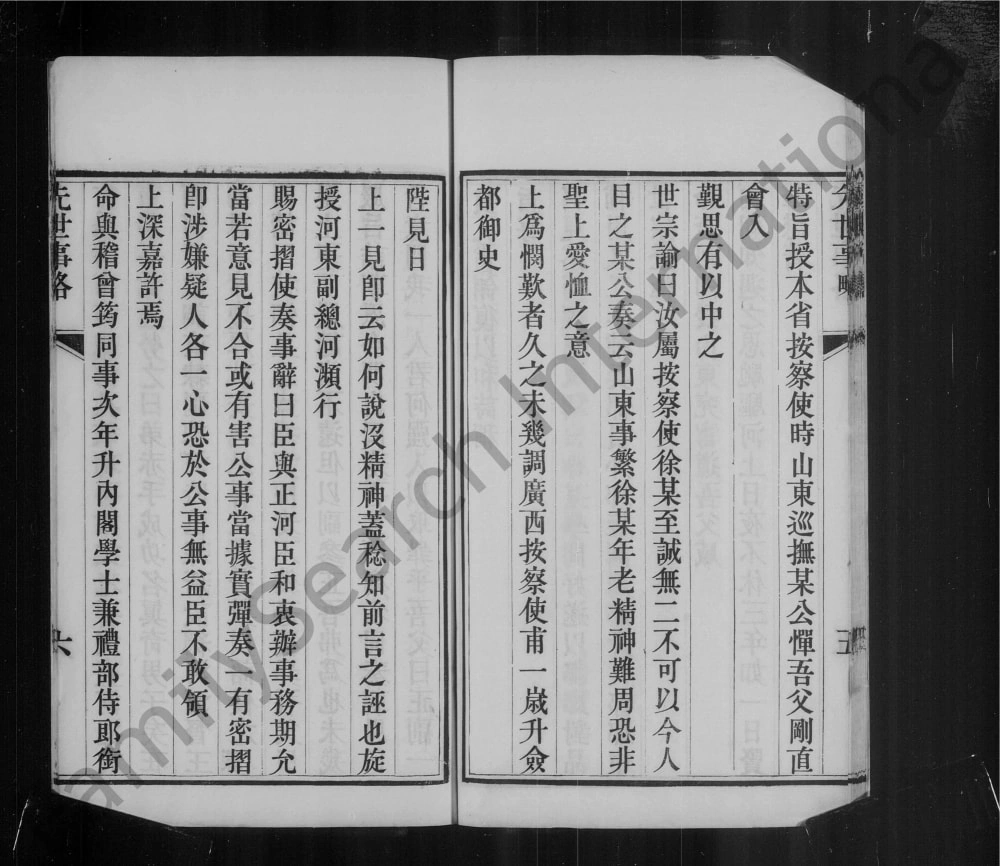 先世事略
五
特旨授本省按察使時山東巡撫某公憚吾父剛直
會入
覲思有以中之
世宗諭曰汝屬按察使徐某至誠無二不可以今人
目之某公奏云山東事繁徐某年老精神難周恐非
聖上愛恤之意
上爲憫歎者久之未幾調廣西按察使甫一歲升僉
都御史
陛見日
上一見卽云如何說沒精神蓋稔知前言之誣也旋
授河東副總河瀕行
賜密摺使奏事辭曰臣與正河臣和衷辦事務期允
當若意見不合或有害公事當據實彈奏一有密摺
卽涉嫌疑人各一心恐於公事無益臣不敢領
上深嘉許焉
命與稽曾筠同事次年升內閣學士兼禮部侍郎銜
先世事略
六
FamilySearch International